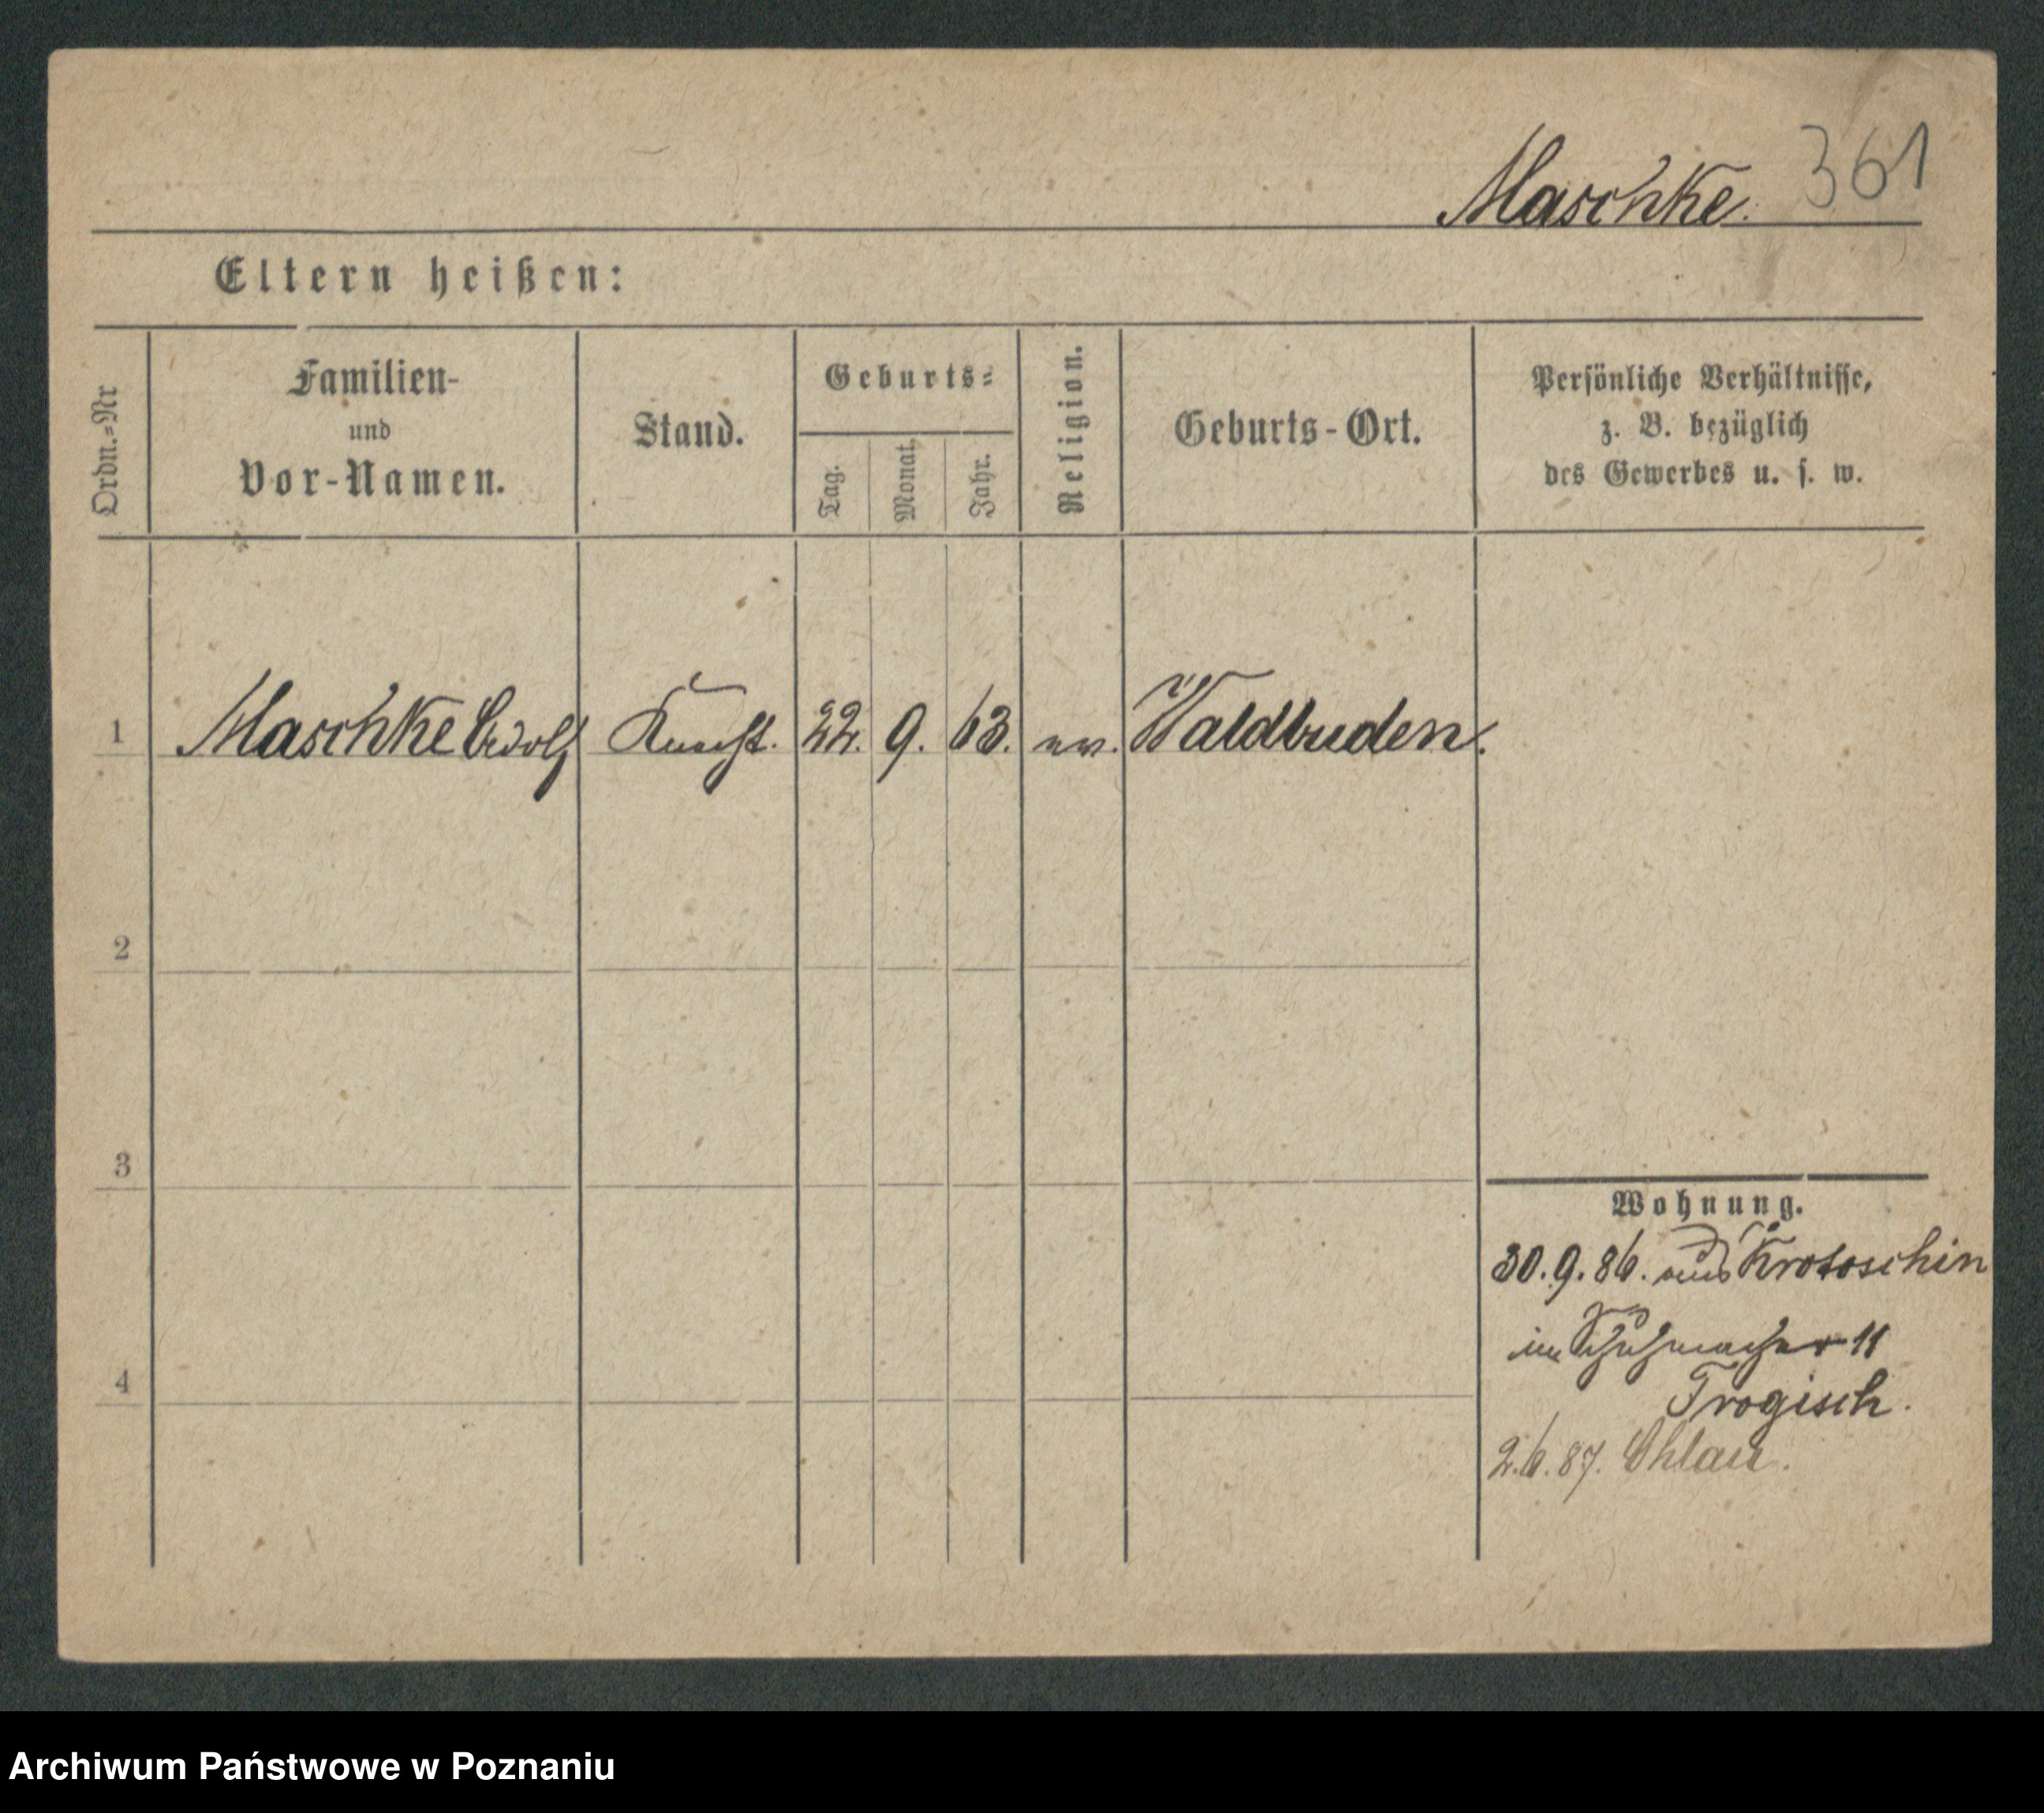 Maschke. 361
Eltern heißen:
Ordn.=Nr
Familien-
und
Vor-Namen.
Stand.
Geburts=
Tag.
Monat.
Jahr.
Religion.
Geburts-Ort.
Persönliche Verhältnisse,
z. B. bezüglich
des Gewerbes u. s. w.
1 Maschke Knecht. 22. 9. 63. ev. Waldbuden.
2
3
4
Wohnung.
30.9.86. aus Krotoschin
in Schuhmacher 11
Trogisch.
2.6.87. Ohlau.
Archiwum Państwowe w Poznaniu